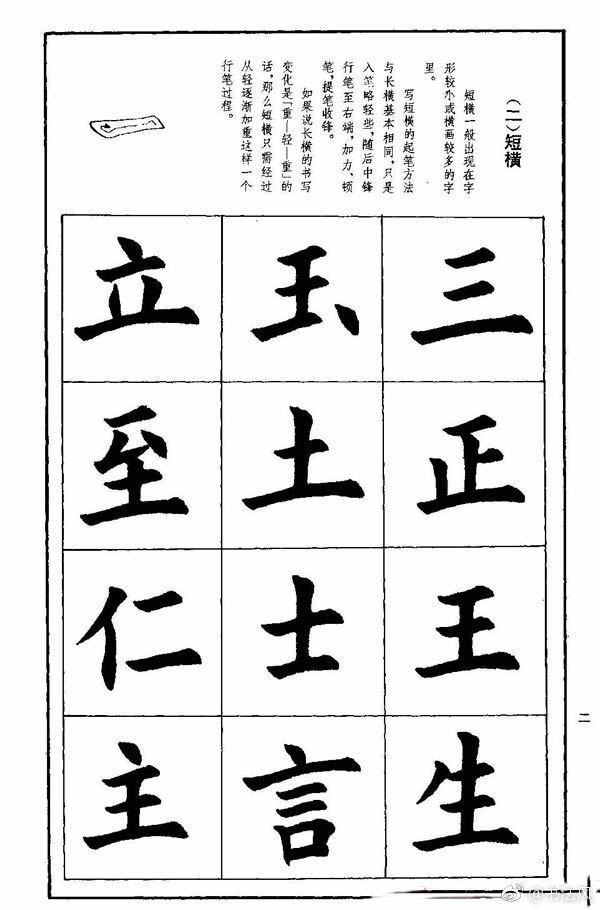 (二)短横
短横一般出现在字
形较小或横画较多的字
里。
写短横的起笔方法
与长横基本相同,只是
入笔略轻些,随后中锋
行笔至右端,加力、顿
笔,提笔收锋。
如果说长横的书写
变化是“重—轻—重”的
话,那么短横只需经过
从轻逐渐加重这样一个
行笔过程。
三
正
王
生
玉
土
士
言
立
至
仁
主
二
@书法风